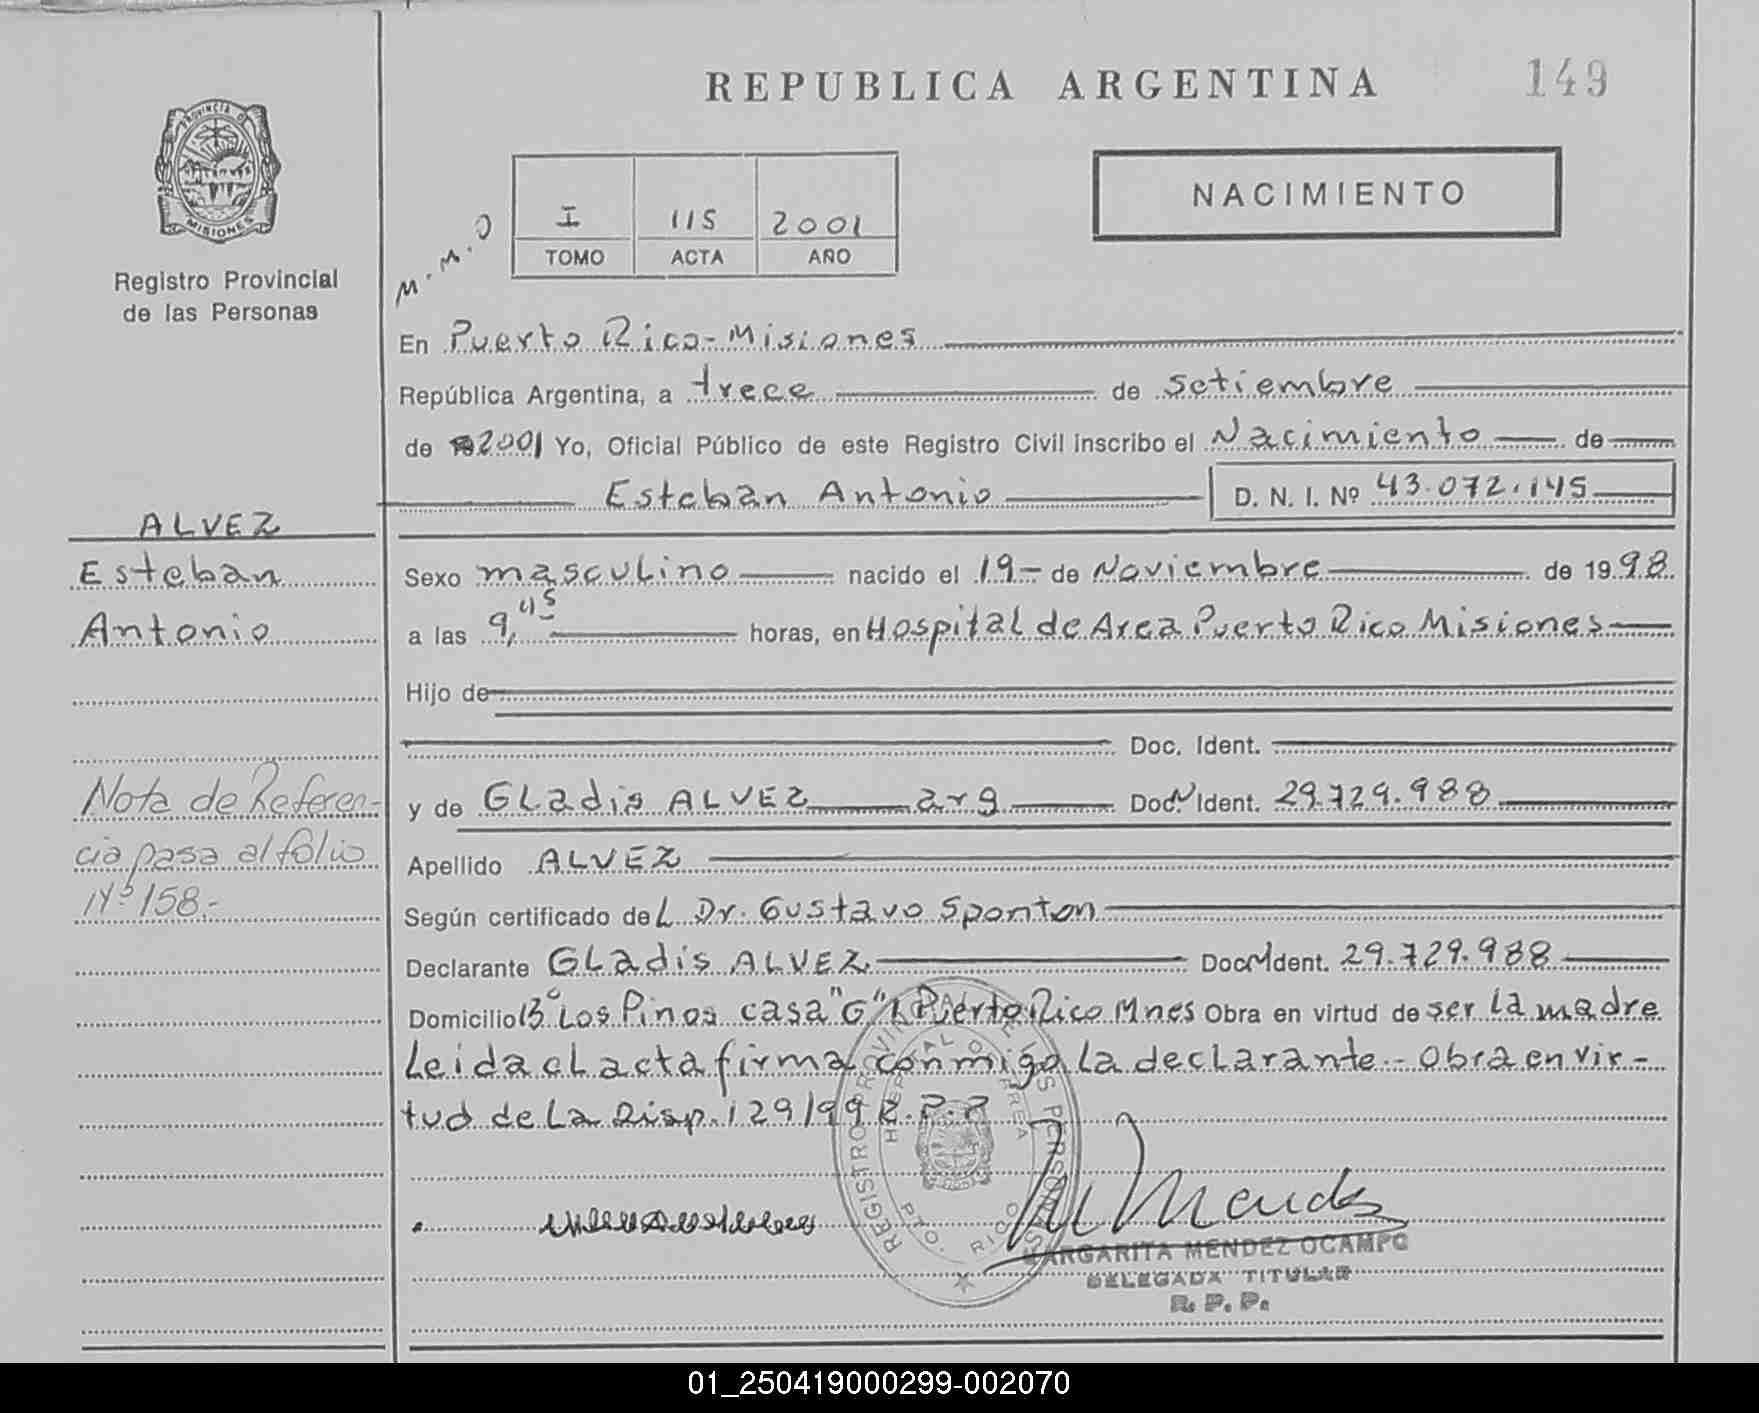 REPUBLICA ARGENTINA
149
PROVINCIA D
MISIONES
Registro Provincial
de las Personas
NACIMIENTO
M.M.O
I 115 2001
TOMO ACTA AÑO
En Puerto Rico-Misiones
República Argentina, a trece de setiembre
de 2001 Yo, Oficial Público de este Registro Civil inscribo el Nacimiento de
Esteban Antonio D. N. I. Nº 43.072.145
ALVEZ
Esteban
Antonio
Sexo masculino nacido el 19- de Noviembre de 1998
a las 9,45 horas, en Hospital de Area Puerto Rico Misiones
Hijo de
Doc. Ident.
y de GLadis ALVEZ arg Doc. Ident. 29.729.988
Nota de Referen-
cia pasa al folio
Nº 158.-
Apellido ALVEZ
Según certificado deL Dr. Gustavo Sponton
Declarante GLadis ALVEZ Doc. Ident. 29.729.988
Domicilio Bº Los Pinos casa "G" Puerto Rico Mnes Obra en virtud de ser La madre
Leida eL acta firma conmigo La decLarante.- Obra en vir-
tud de La Disp. 129/99 R.P.P
REGISTRO PROVINCIAL DE LAS PERSONAS
HOSPITAL DE AREA
PTO. RICO
M Mendez
MARGARITA MENDEZ OCAMPO
DELEGADA TITULAR
R. P. P.
01_250419000299-002070